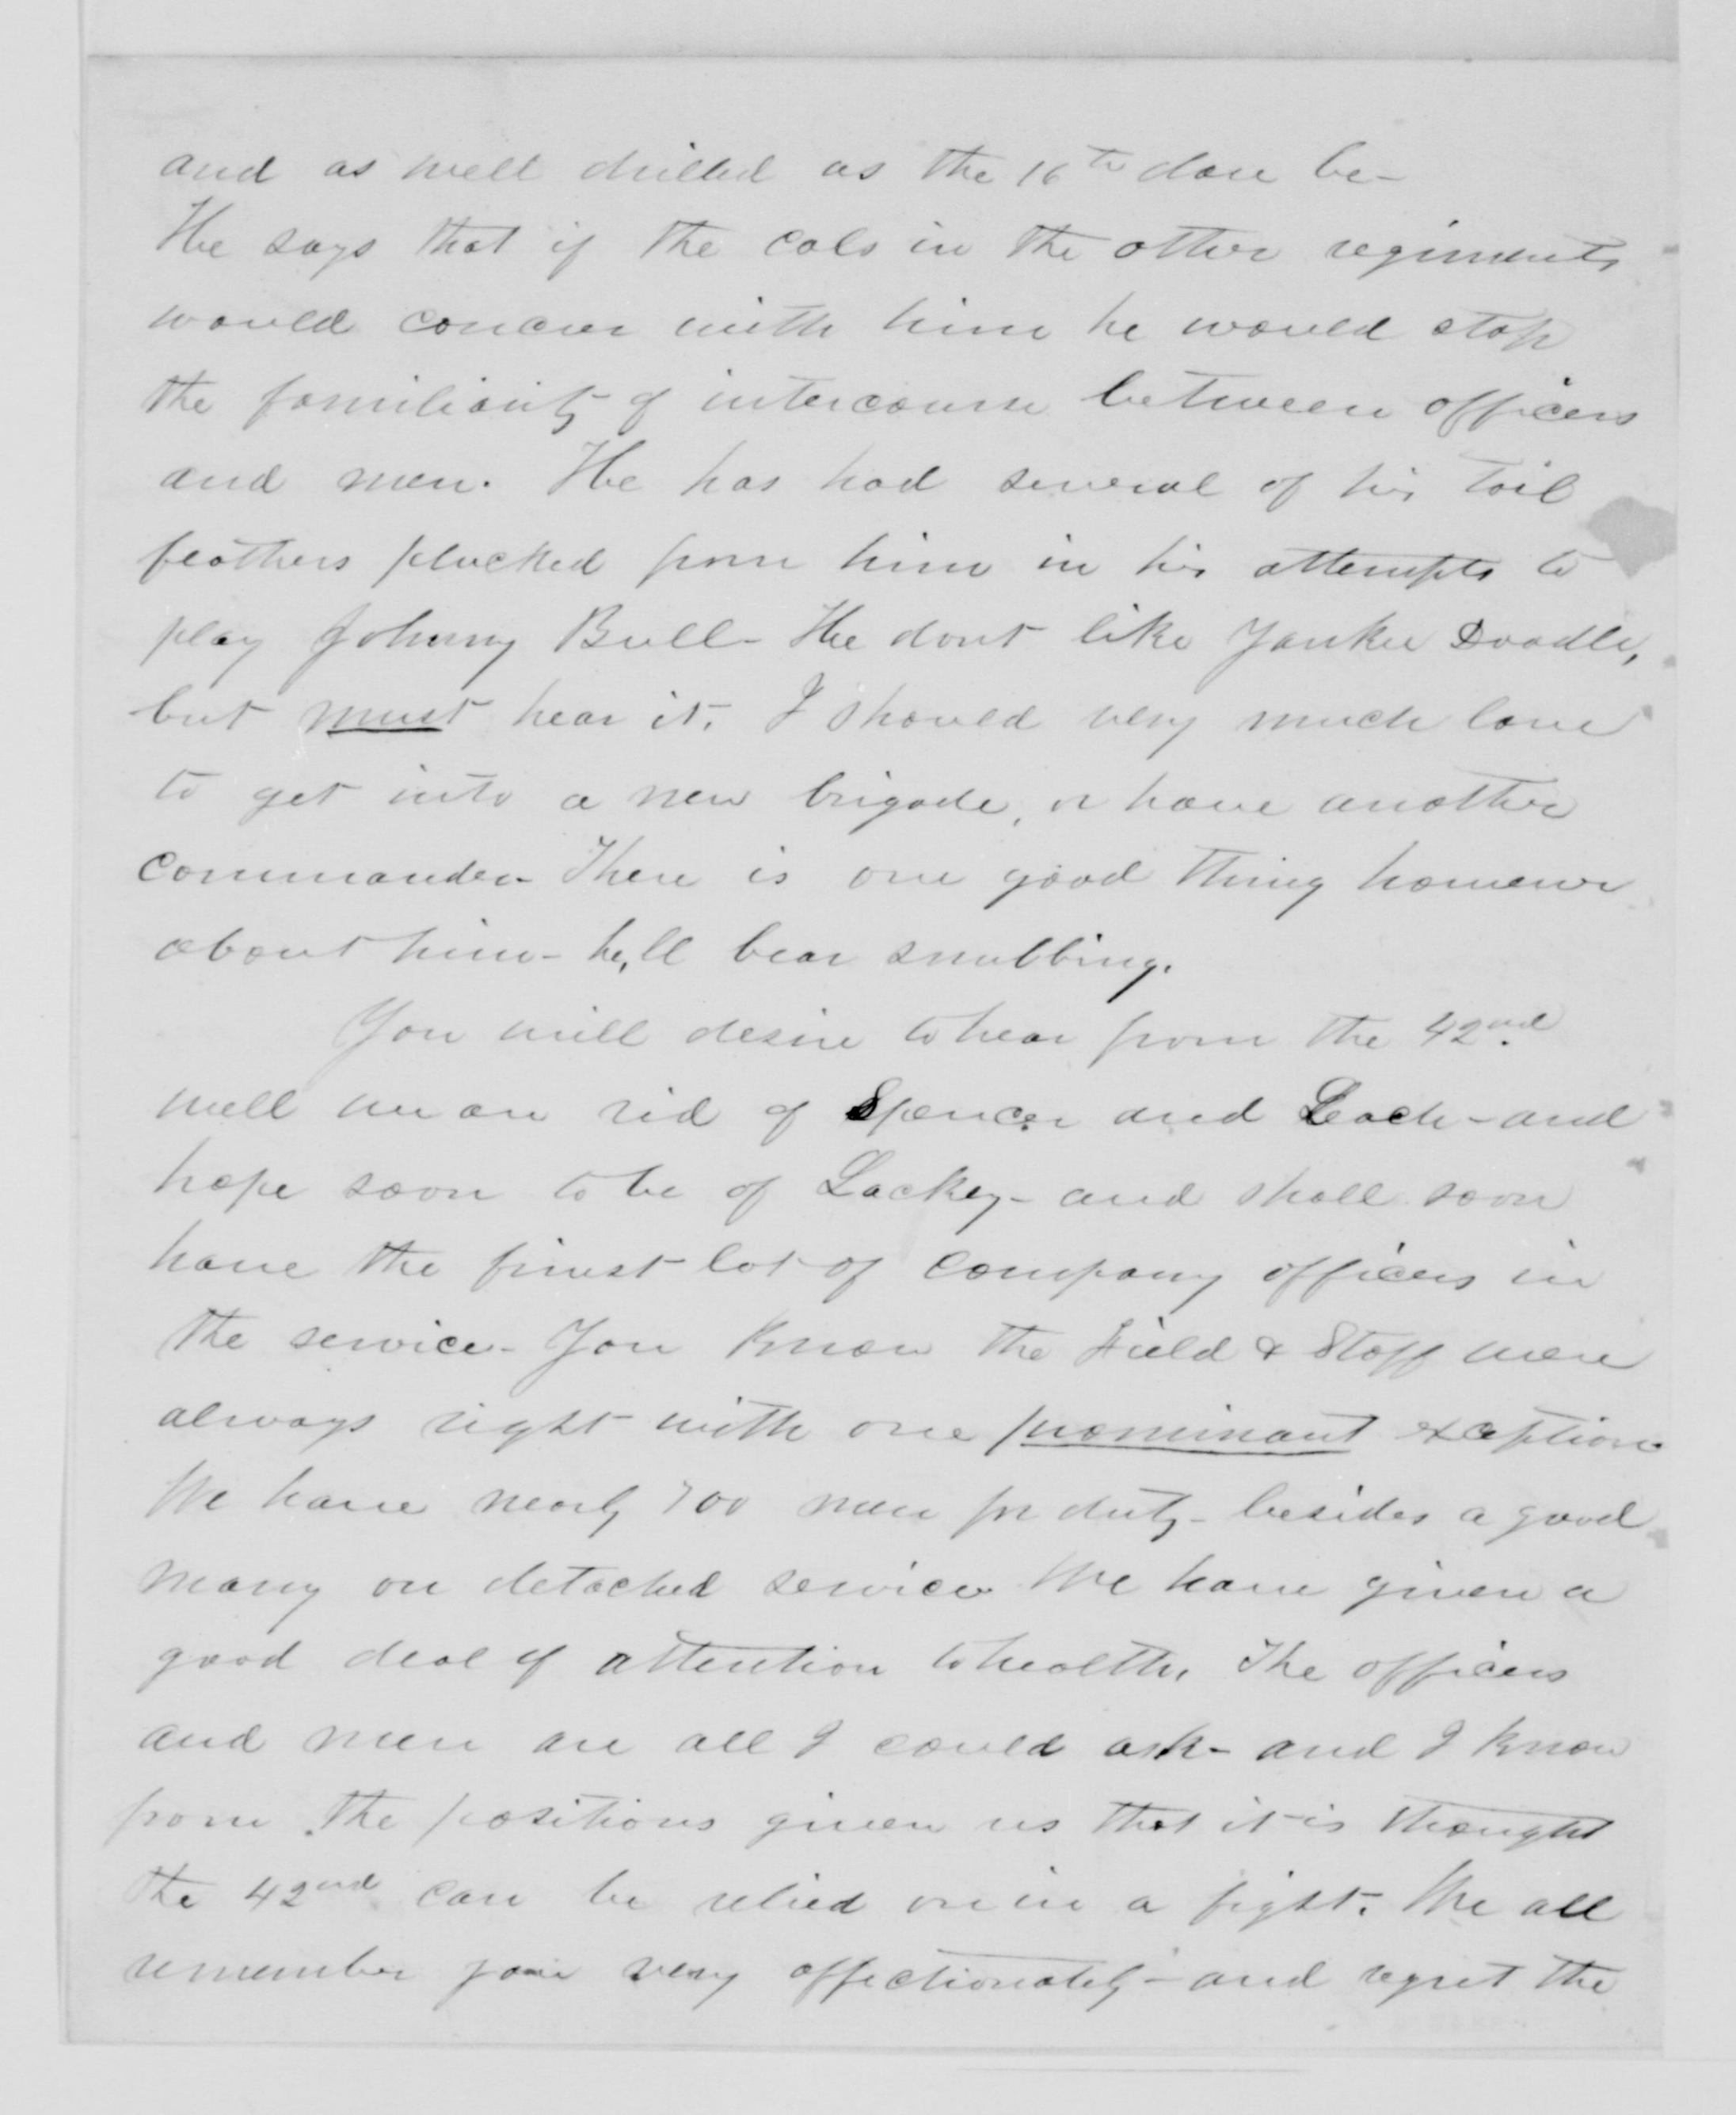 and as well drilled as the 16th dare be-
He says that if the cols in the other regiments
would concur with him he would stop
the familiarity of intercourse between officers
and men. He has had several of his tail
feathers plucked from him in his attempts to
play Johnny Bull- He dont like Yankee Doodle,
but must hear it. I should very much love
to get into a new brigade, or have another
commander- There is one good thing however
about him- he,ll bear snubbing.
You will desire to hear from the 42nd
well we are rid of Spencer and Leach- and
hope soon to be of Lackey- and shall soon
have the finest lot of company officers in
the service- You know the Field & Staff were
always right with one prominant exception
We have nearly 700 men for duty- besides a good
many on detached service We have given a
good deal of attention to health. The officers
and men are all I could ask- and I know
from the positions given us that it is thought
the 42nd can be relied on in a fight. We all
remember you very affectionately- and regret the